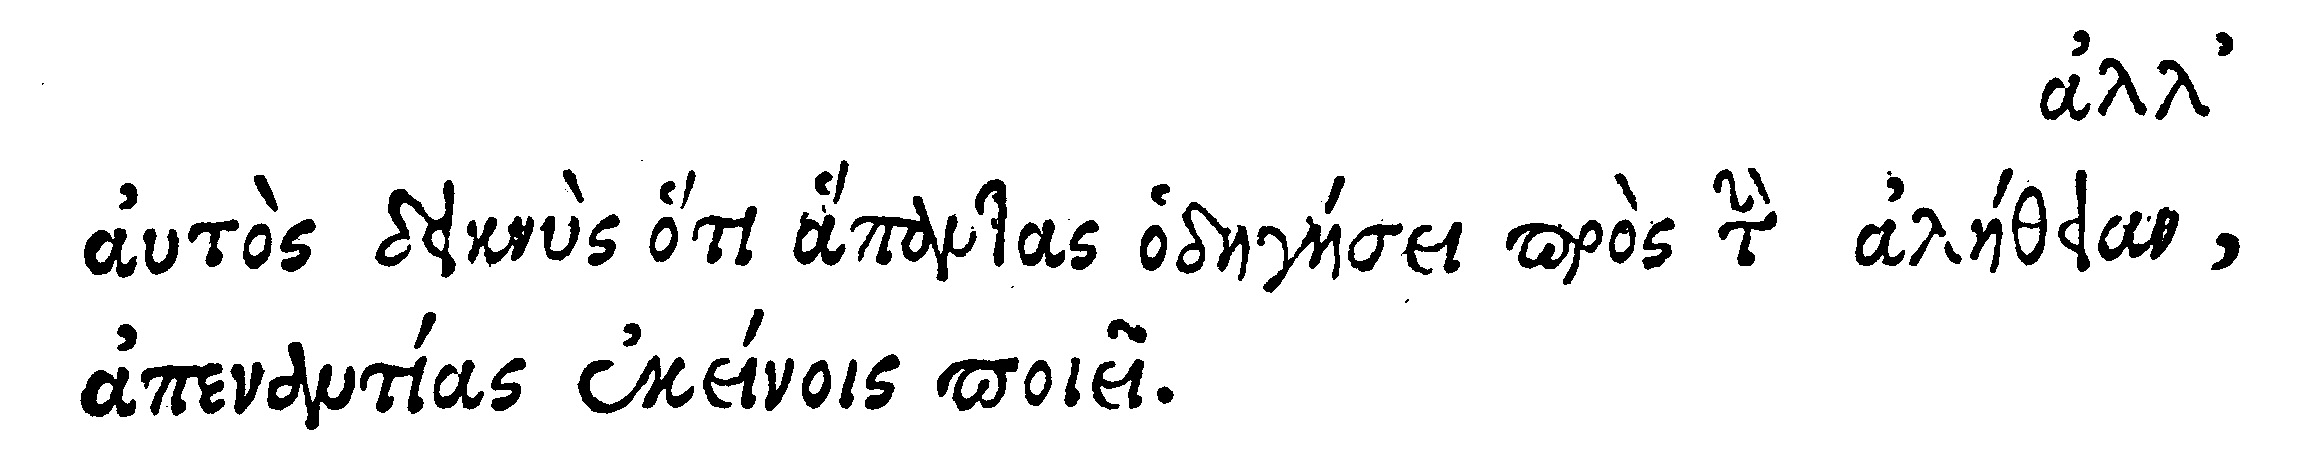 ἀλλ’
ἀυτὸς δεικνὺς ὅτι ἅπαντας ὁδηγήσει πρὸς τὴν ἀλήθειαν,
ἀπεναντίας ἐκείνοις ποιεῖ.